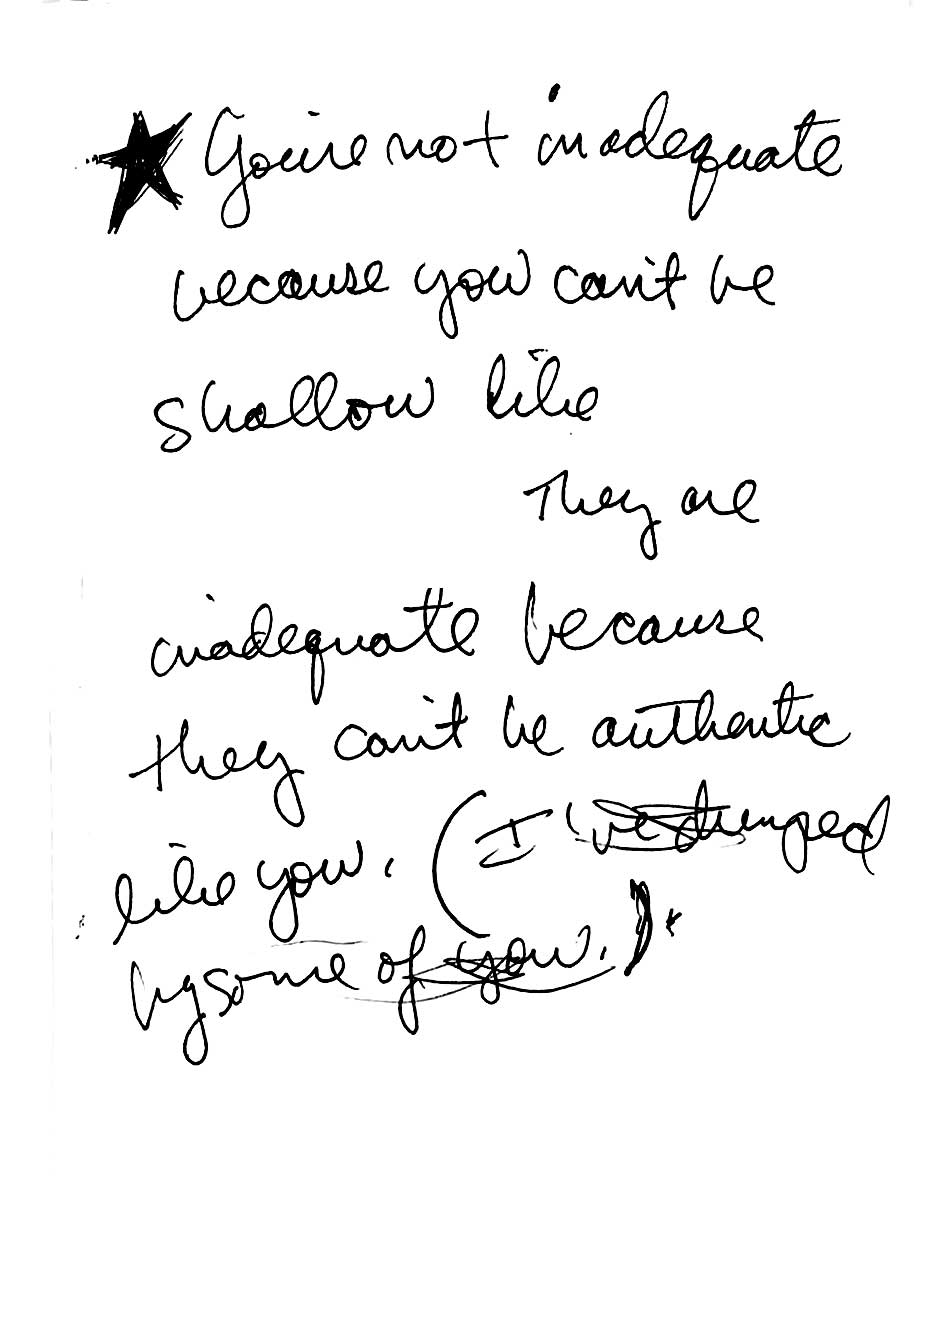 You're not inadequate
because you can't be
shallow like
They are
inadequate because
they can't be authentic
like you. (I've
by some of you.)